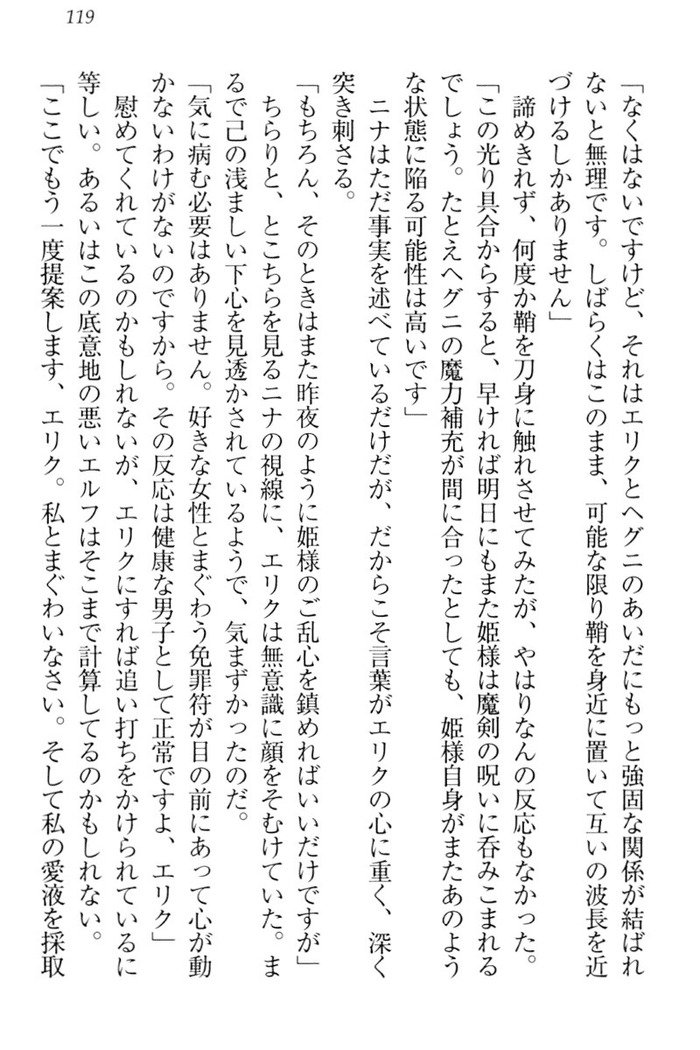 119
「なくはないですけど、それはエリクとヘグニのあいだにもっと強固な関係が結ばれ
ないと無理です。しばらくはこのまま、可能な限り鞘を身近に置いて互いの波長を近
づけるしかありません」
諦めきれず、何度か鞘を刀身に触れさせてみたが、やはりなんの反応もなかった。
「この光り具合からすると、早ければ明日にもまた姫様は魔剣の呪いに呑みこまれる
でしょう。たとえヘグニの魔力補充が間に合ったとしても、姫様自身がまたあのよう
な状態に陥る可能性は高いです」
ニナはただ事実を述べているだけだが、だからこそ言葉がエリクの心に重く、深く
突き刺さる。
「もちろん、そのときはまた昨夜のように姫様のご乱心を鎮めればいいだけですが」
ちらりと、とこちらを見るニナの視線に、エリクは無意識に顔をそむけていた。ま
るで己の浅ましい下心を見透かされているようで、気まずかったのだ。
「気に病む必要はありません。好きな女性とまぐわう免罪符が目の前にあって心が動
かないわけがないのですから。その反応は健康な男子として正常ですよ、エリク」
慰めてくれているのかもしれないが、エリクにすれば追い打ちをかけられているに
等しい。あるいはこの底意地の悪いエルフはそこまで計算してるのかもしれない。
「ここでもう一度提案します、エリク。私とまぐわいなさい。そして私の愛液を採取